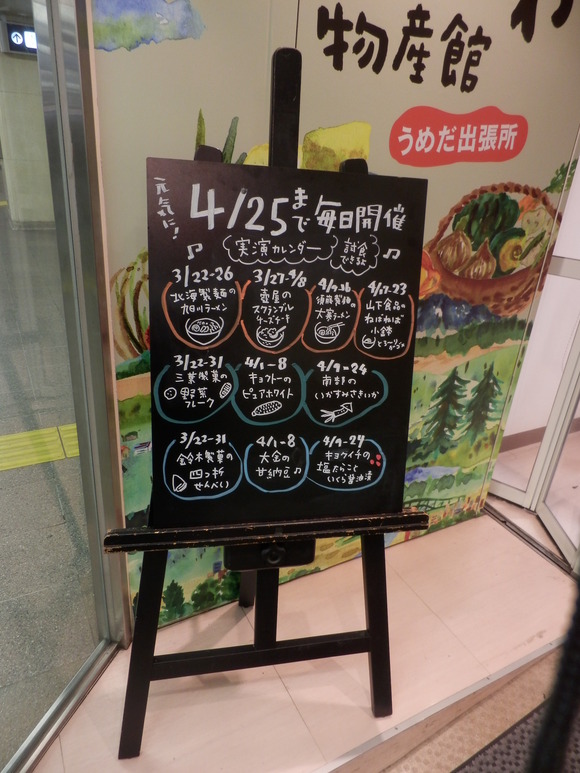 物産館
うめだ出張所
元気に!
4/25まで毎日開催
実演カレンダー
試食できるよ
3/22-26
北海製麺の
旭川ラーメン
3/27-4/8
壺屋の
スクランブル
チーズケーキ
4/9-16
須藤製麺の
大雪ラーメン
4/17-23
山下食品の
ねばねば
小金棒
3/22-31
三葉製菓の
野菜
フレーク
4/1-8
キョクトーの
ピュアホワイト
4/9-24
いかすみさきいか
3/22-31
鈴木製菓の
四つ折
せんべい
4/1-8
大金の
甘納豆♪
4/9-24
キョウイチの
塩たらこと
いくら醤油漬